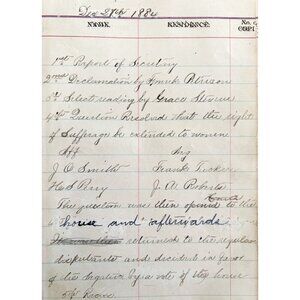 Dec 27th 1884
NAME. RESIDENCE. No.
1st Report of Secretary
2nd Declamation by Peterson
3d Select reading by Grace Stevens
4th Question Resolved that the right
of Suffrage be extended to women
Aff Neg
J O Smith Frank Tucker
H S Perry J A Roberts
The question was then opened to the
"house and" afterwards
It was then returned to the regular
disputants and decided in favor
of the negative by a vote of the house